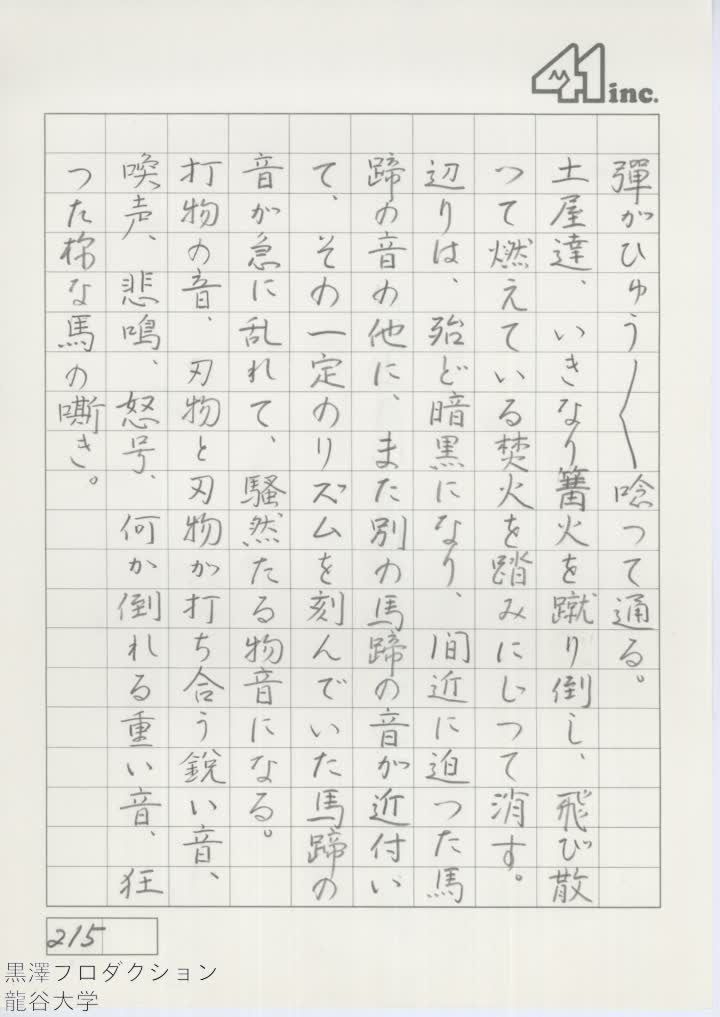 41 inc.
彈がひゅう〳〵唸つて通る。
土屋達、いきなり篝火を蹴り倒し、飛び散
つて燃えている焚火を踏みにじつて消す。
辺りは、殆ど暗黒になり、間近に迫つた馬
蹄の音の他に、また別の馬蹄の音が近付い
て、その一定のリズムを刻んでいた馬蹄の
音が急に乱れて、騒然たる物音になる。
打物の音、刃物と刃物が打ち合う鋭い音、
喚声、悲鳴、怒号、何か倒れる重い音、狂
つた様な馬の嘶き。
215
黒澤プロダクション
龍谷大学